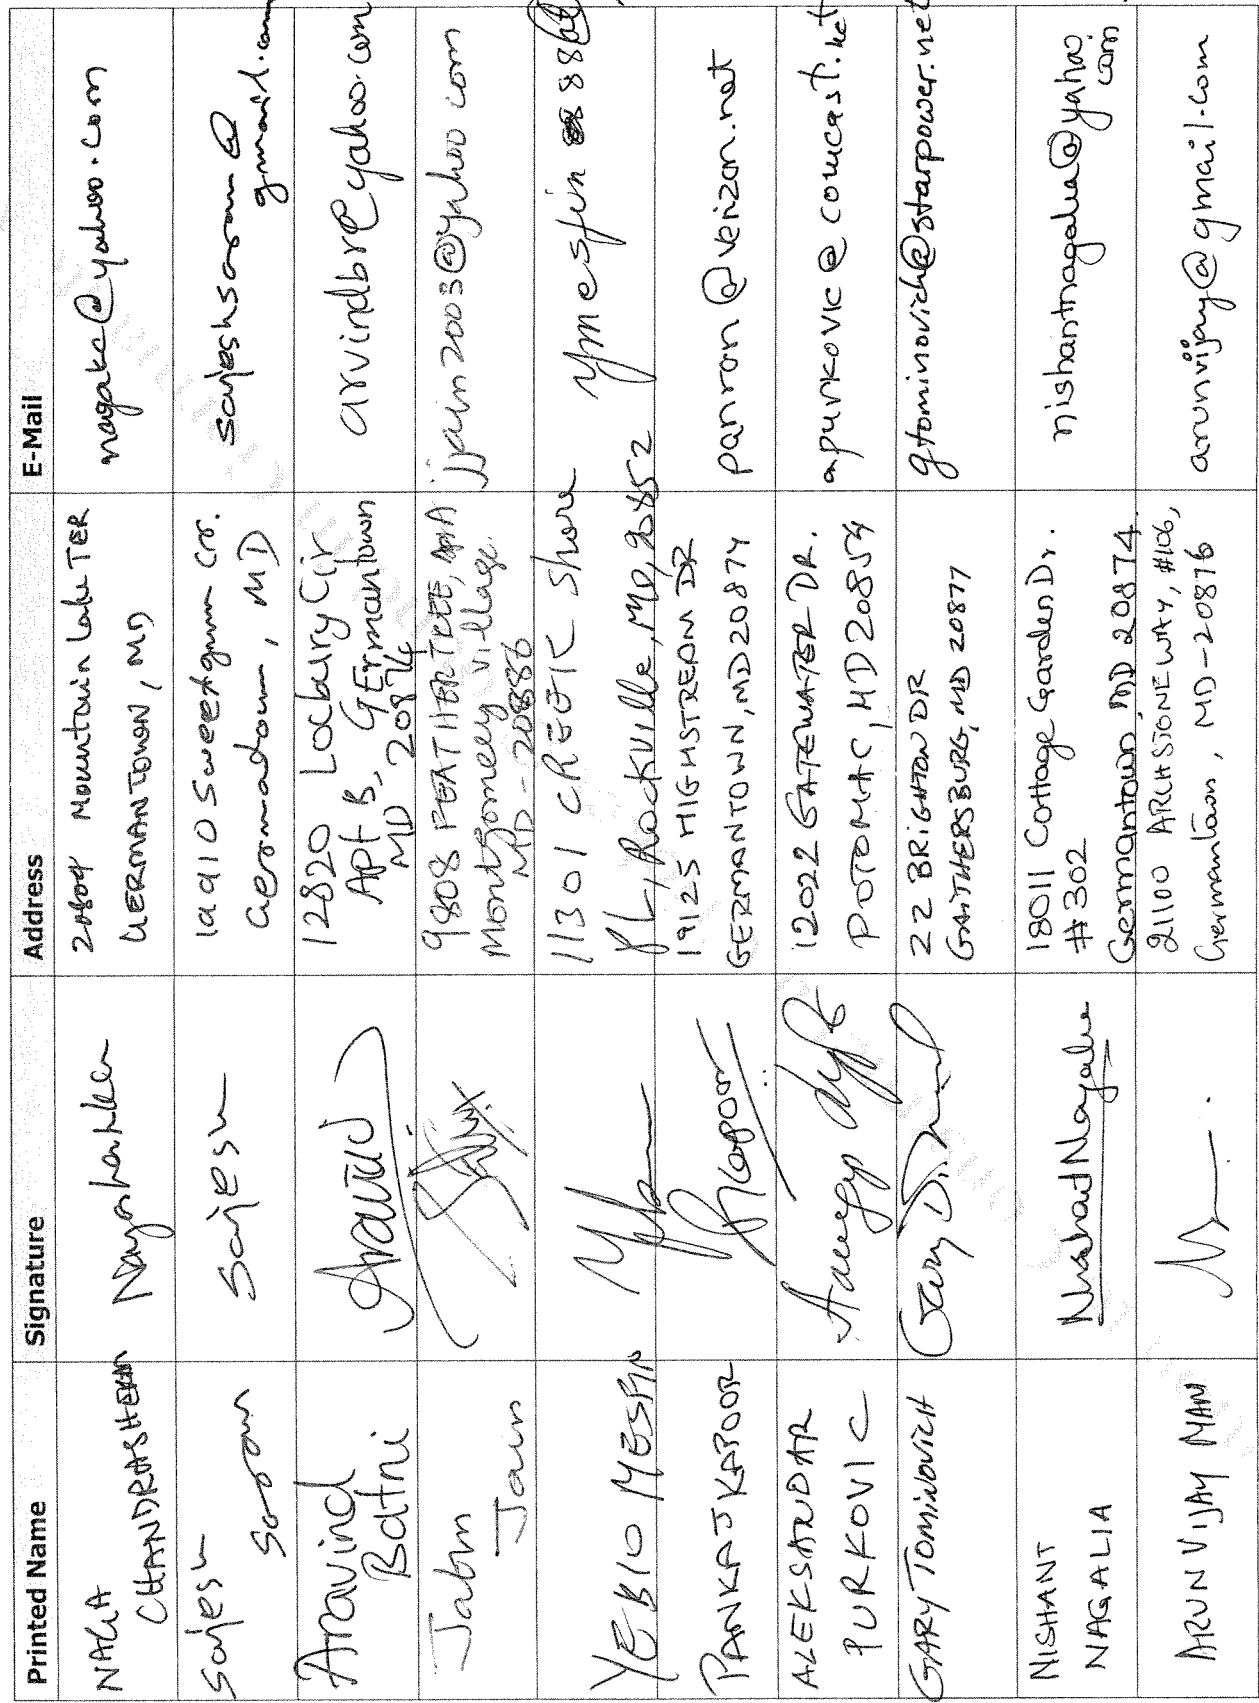 Printed Name Signature Address E-Mail
NAGA
CHANDRASHEKAR
20809 Mountain Lake TER
GERMANTOWN, MD
nagakc@yahoo.com
Sajesh
Soman
Sajesh
19910 Sweetgum Cir.
Germantown, MD
sajeshsoman@
gmail.com
Aravind
Batni
Aravind
12820 Locbury Cir
Apt B, Germantown
MD 20874
arvindbr@yahoo.com
Jain
9808 FEATHERTREE, Apt A
Montgomery village
MD - 20886
jjain2003@yahoo com
YEBIO MESFIN
11301 CREEK Shore
PL, Rockville, MD, 20852
ymesfin 888
PANKAJ KAPOOR
PKapoor
19125 HIGHSTREAM DR
GERMANTOWN, MD 20874
panron@verizon.net
ALEKSANDAR
PURKOVIC
12022 GATEWATER DR.
POTOMAC, MD 20854
apurkovic@comcast.net
GARY TOMINOVICH
Gary
22 BRIGHTON DR
GAITHERSBURG, MD 20877
gtominovich@starpower.net
NISHANT
NAGALIA
Nishant Nagalia
18011 Cottage Garden Dr.
#302
Germantown, MD 20874
nishantnagalia@yahoo
com
ARUN VIJAY MANI
21100 ARCHSTONE WAY, #106,
Germantown, MD-20876
arunvijay@gmail.com